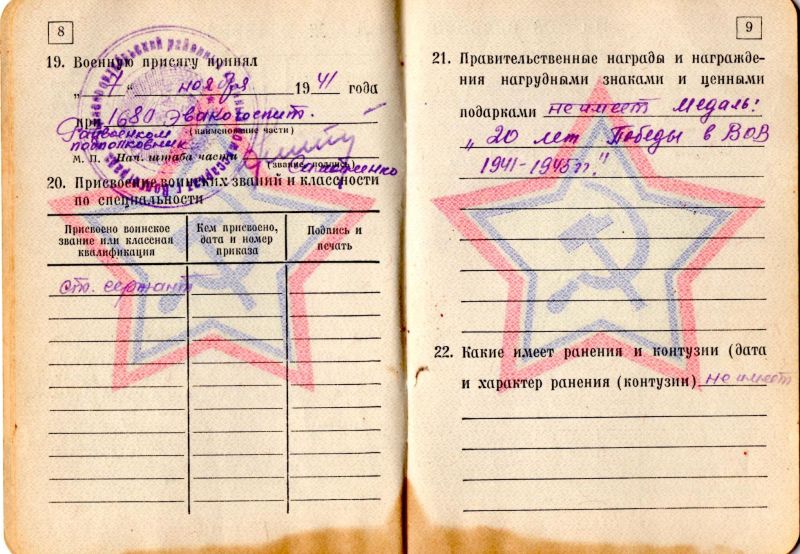 8
19. Военную присягу принял
„ 7 “ ноября 1941 года
при 1680 Эвакогоспит.
(наименование части)
Райвоенком
подполковник
М. П. Нач. штаба части
(звание, подпись)
20. Присвоение воинских званий и классности
по специальности
Присвоено воинское
звание или классная
квалификация
Кем присвоено,
дата и номер
приказа
Подпись и
печать
ст. сержант
9
21. Правительственные награды и награжде-
ния нагрудными знаками и ценными
подарками не имеет Медаль:
„ 20 лет Победы в ВОВ
1941-1945 гг."
22. Какие имеет ранения и контузии (дата
и характер ранения (контузии) не имеет